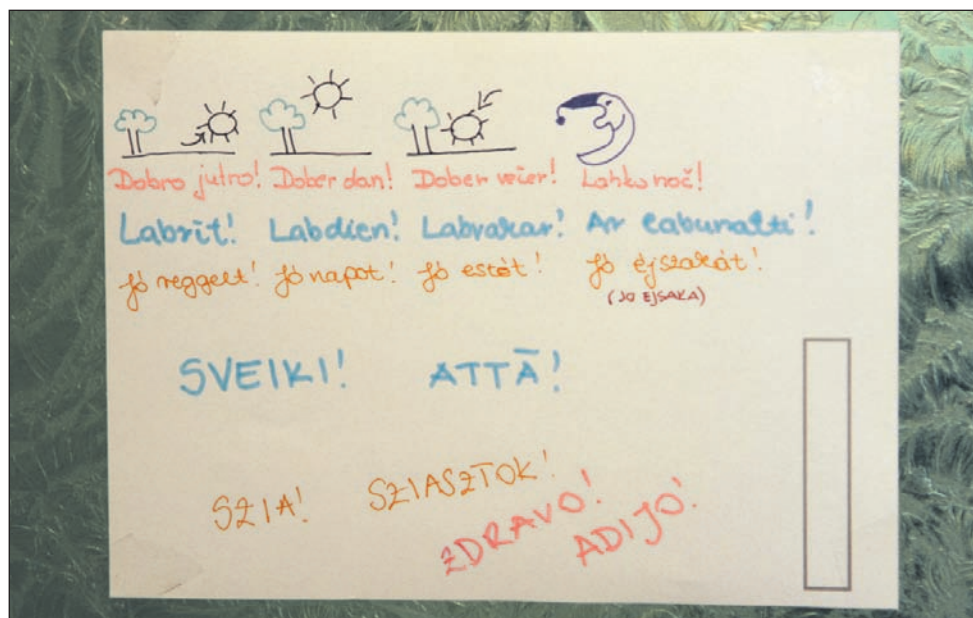 Dobro jutro! Dober dan! Dober večer! Lahko noč!
Labrīt! Labdien! Labvakar! Ar labunakti!
Jó reggelt! Jó napot! Jó estét! Jó éjszakát!
(JO EJSAKA)
SVEIKI! ATTĀ!
SZIA! SZIASZTOK!
ZDRAVO!
ADIJO!